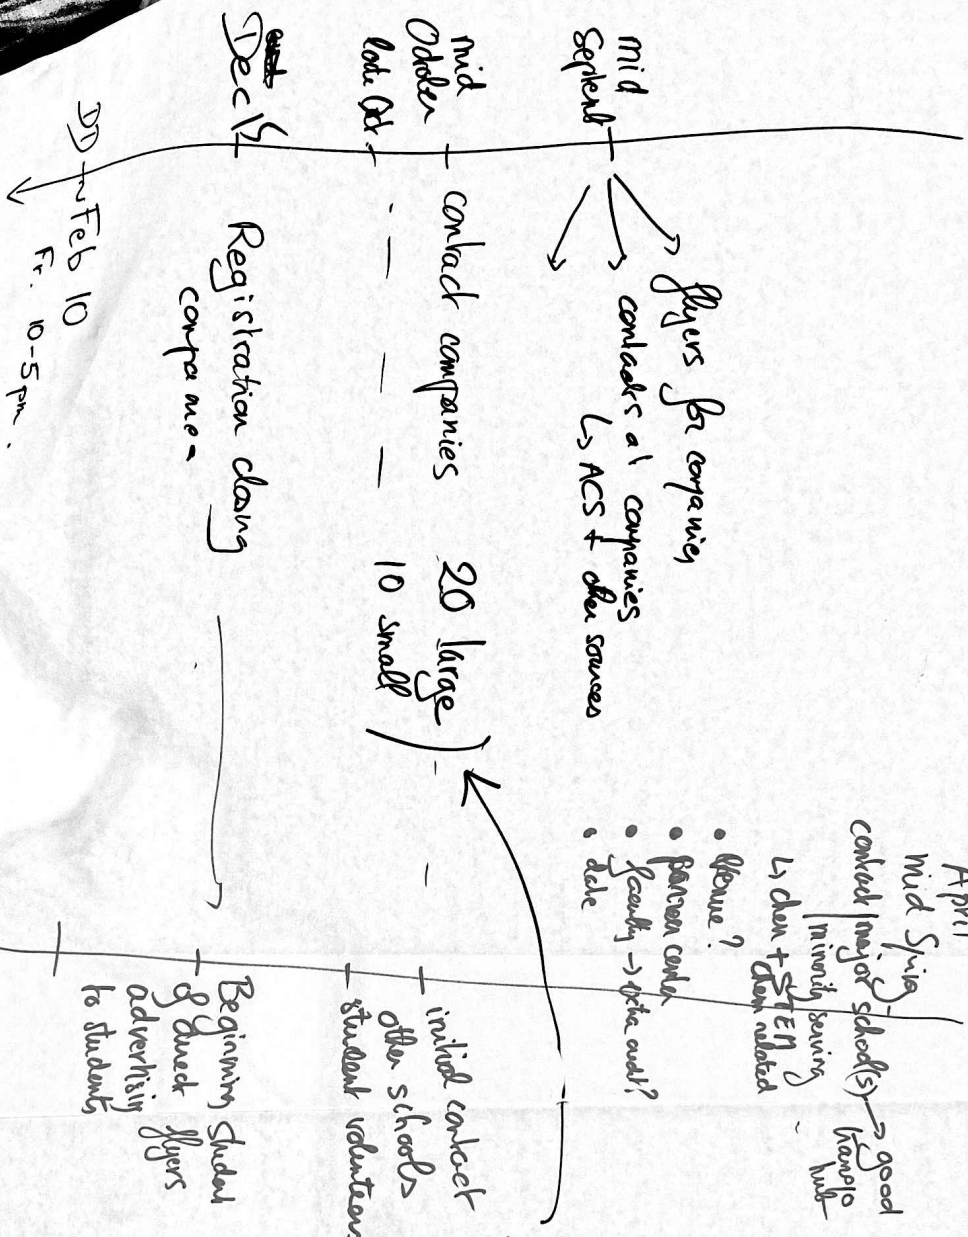 April
mid Spring
contact major school(s) → good
minority serving
hub
↳ chem + STEM
chem related
• venue?
• career center
• faculty → extra credit?
• date
mid
Septemb
flyers for companies
contacts at companies
↳ ACS + other sources
mid
October
contact companies 20 large
late Oct
10 small
initial contact
other schools
student volunteers
Dec 15
Registration closing
companies
Beginning student
flyers
advertising
to students
DD ~ Feb 10
Fr. 10-5 pm.